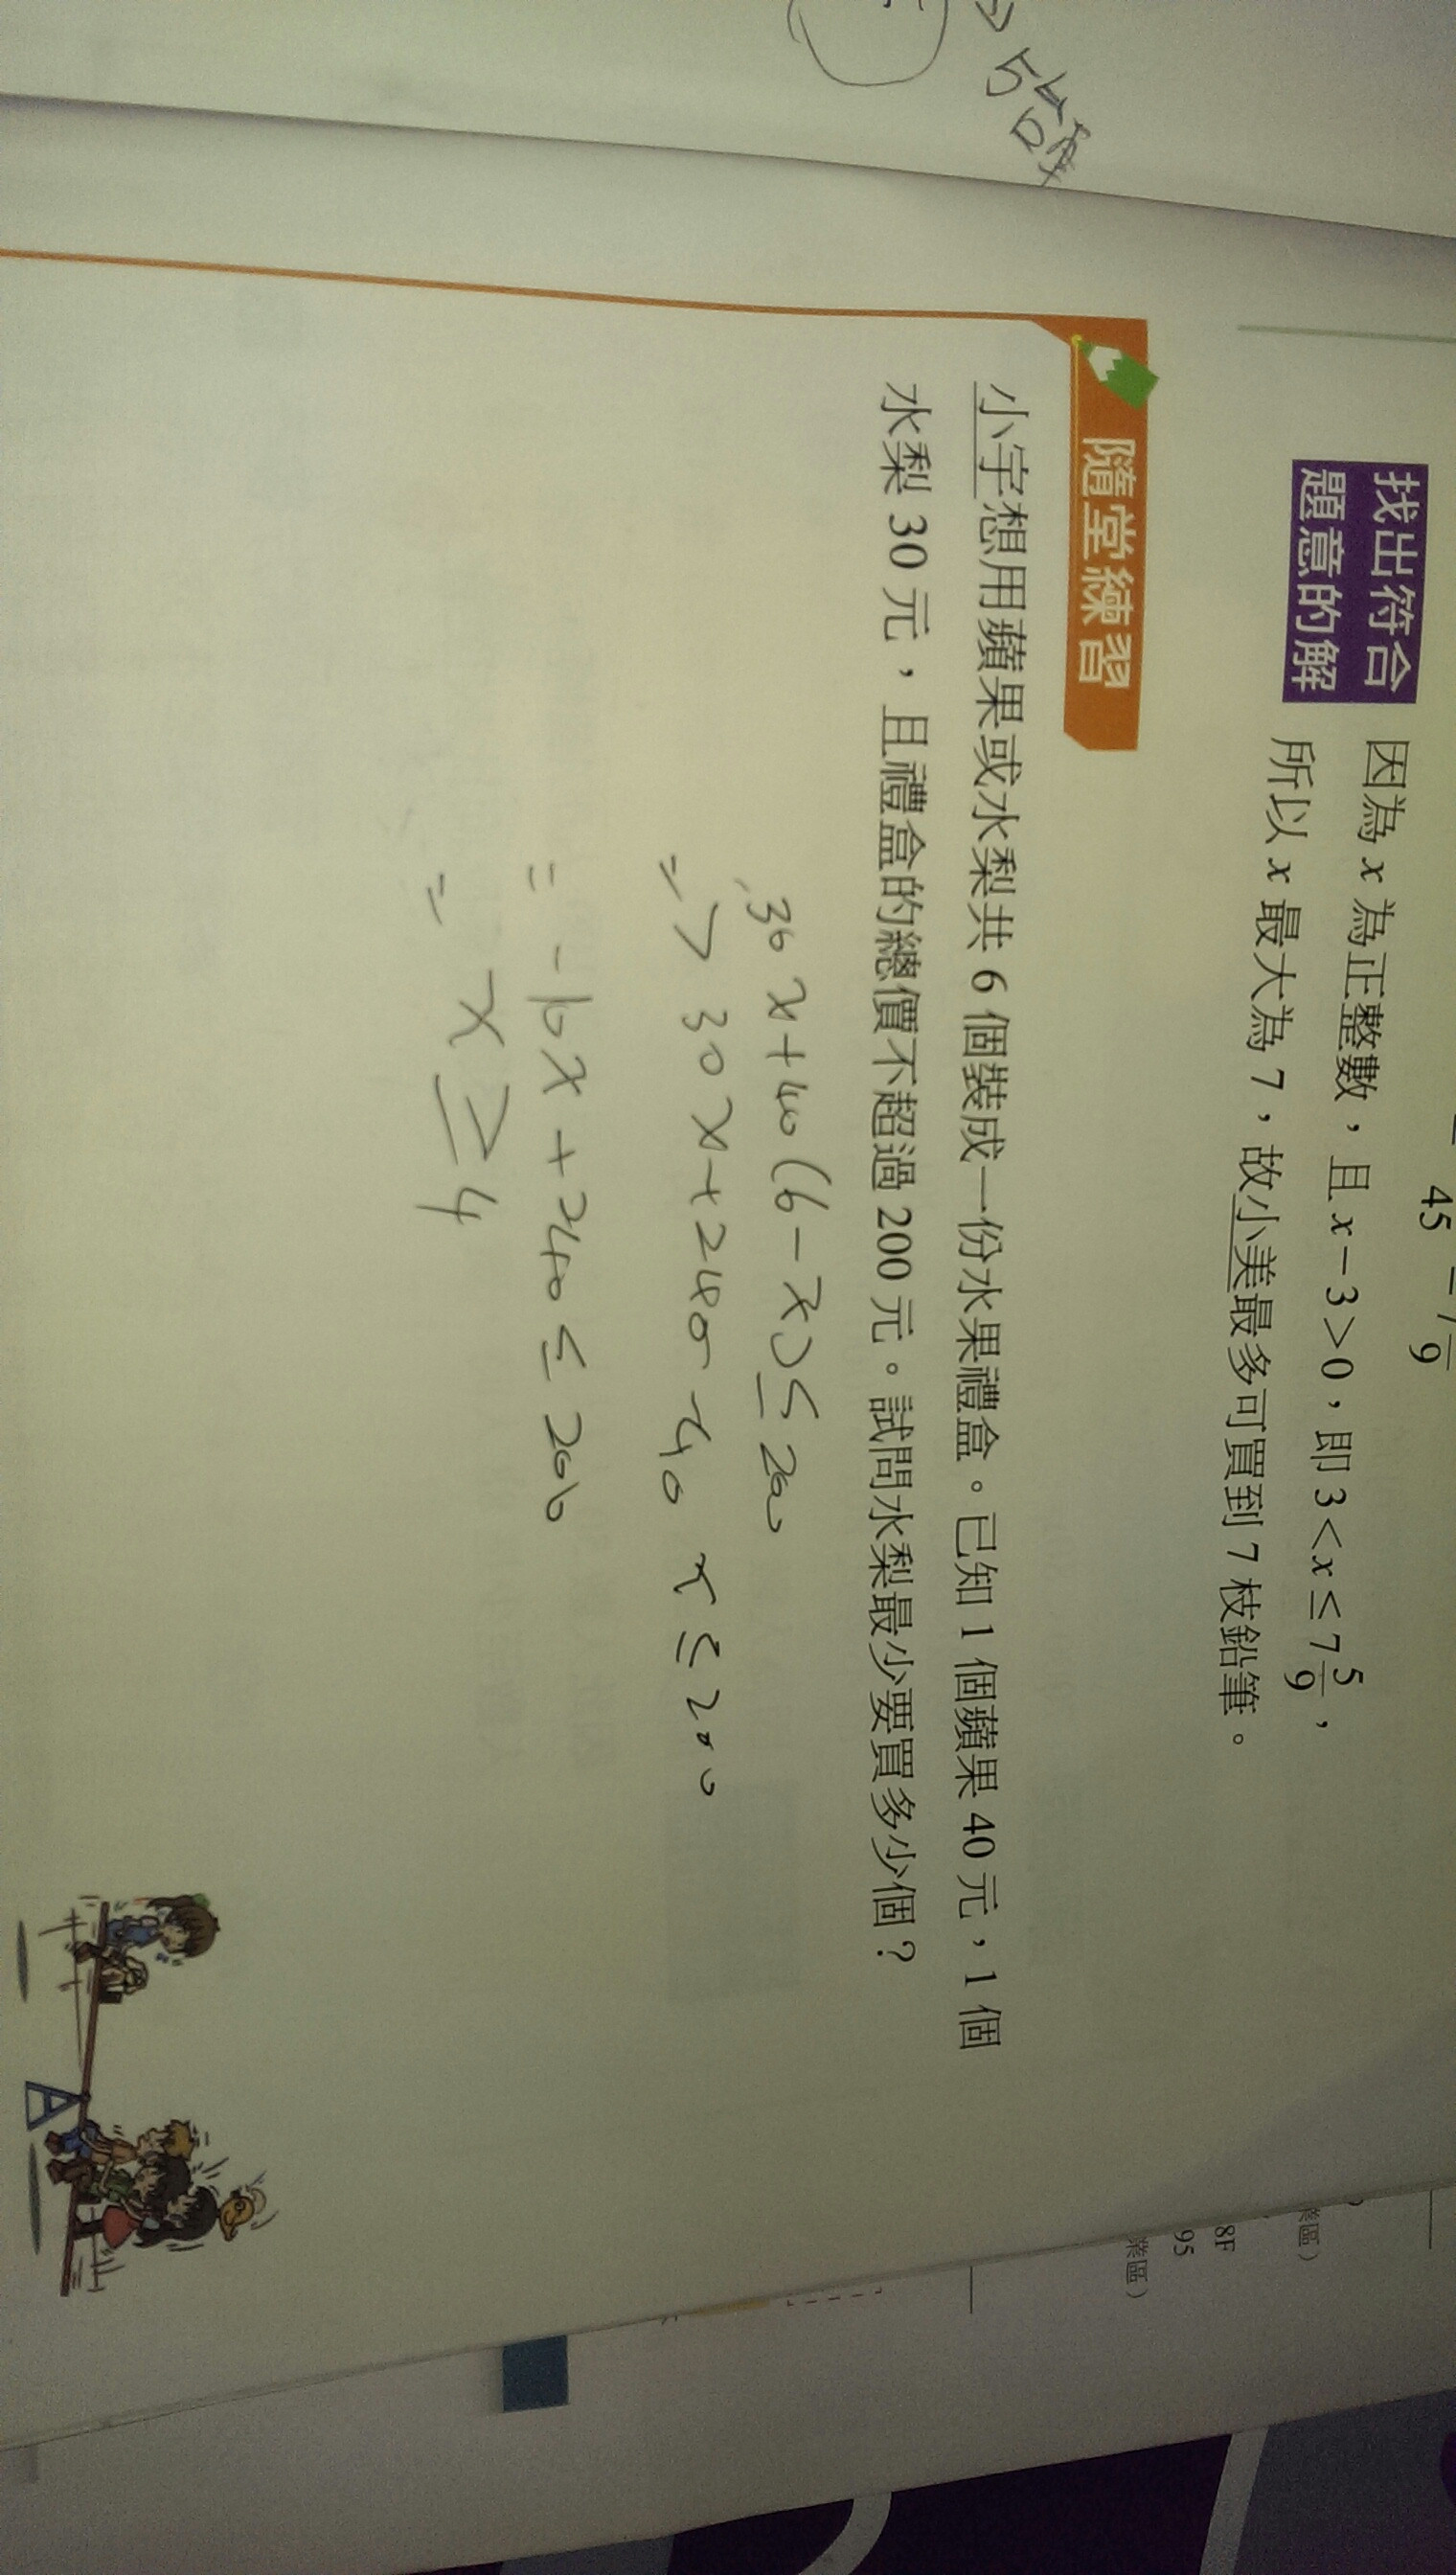 45
9
找出符合
題意的解
因為 x 為正整數，且 x－3＞0，即 3＜x≤7 5/9，
所以 x 最大為 7，故小美最多可買到 7 枝鉛筆。
隨堂練習
小宇想用蘋果或水梨共 6 個裝成一份水果禮盒。已知 1 個蘋果 40 元，1 個
水梨 30 元，且禮盒的總價不超過 200 元。試問水梨最少要買多少個？
30x+40(6-x)≤200
=> 30x+240-40x≤200
= -10x+240≤200
= x≥4
業區）
8F
95
業區）